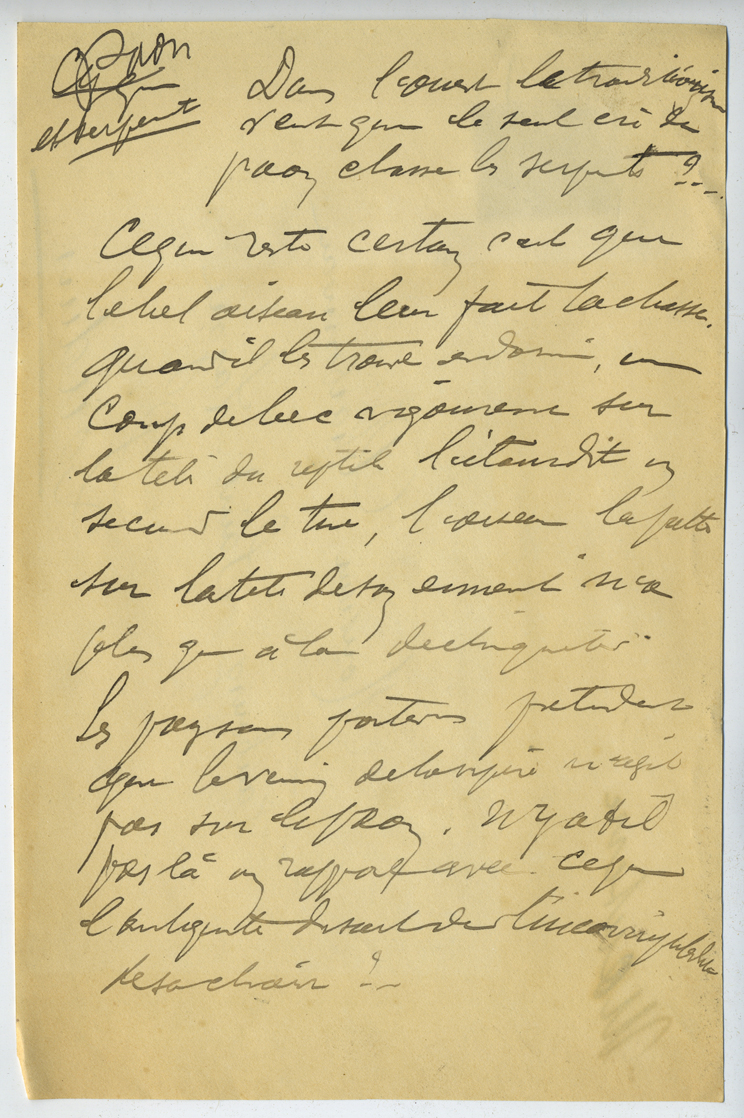 Paon
et serpent
Dans l'ouest la tradition
veut que le seul cri du
paon chasse les serpents ?..
Ce qui reste certain c'est que
le bel oiseau leur fait la chasse.
quand il les trouve endormi, un
coup de bec vigoureux sur
la tête du reptile l'étourdit un
second le tue, l'oiseau la patte
sur la tête de son ennemi n'a
plus qu'à le déchiqueter.
Les paysans poitevins prétendent
que le venin de la vipère n'agit
pas sur le paon. N'y a t il
pas là un rapport avec ce que
l'antiquité disait de l'incorruptibilité
de sa chair ?..